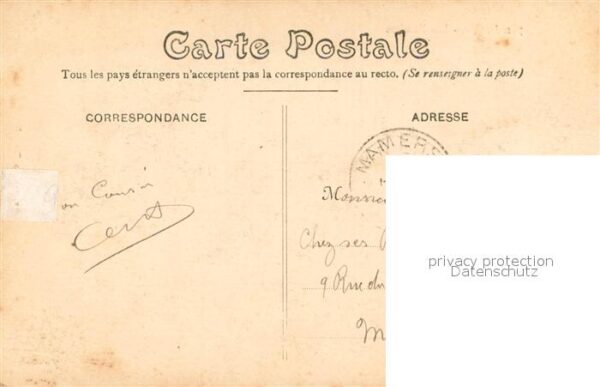 Carte Postale
Tous les pays étrangers n'acceptent pas la correspondance au recto. (Se renseigner à la poste)
CORRESPONDANCE
ADRESSE
MAMERS
on Cousin
Monsieu
Chez ses
9 Rue du
M
privacy protection
Datenschutz